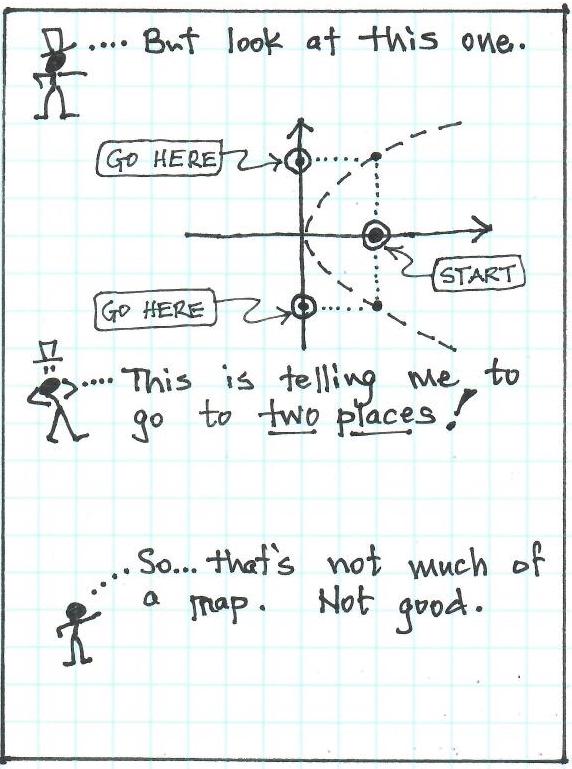 .... But look at this one.
GO HERE
START
GO HERE
.... This is telling me to
go to two places!
.... So... that's not much of
a map. Not good.